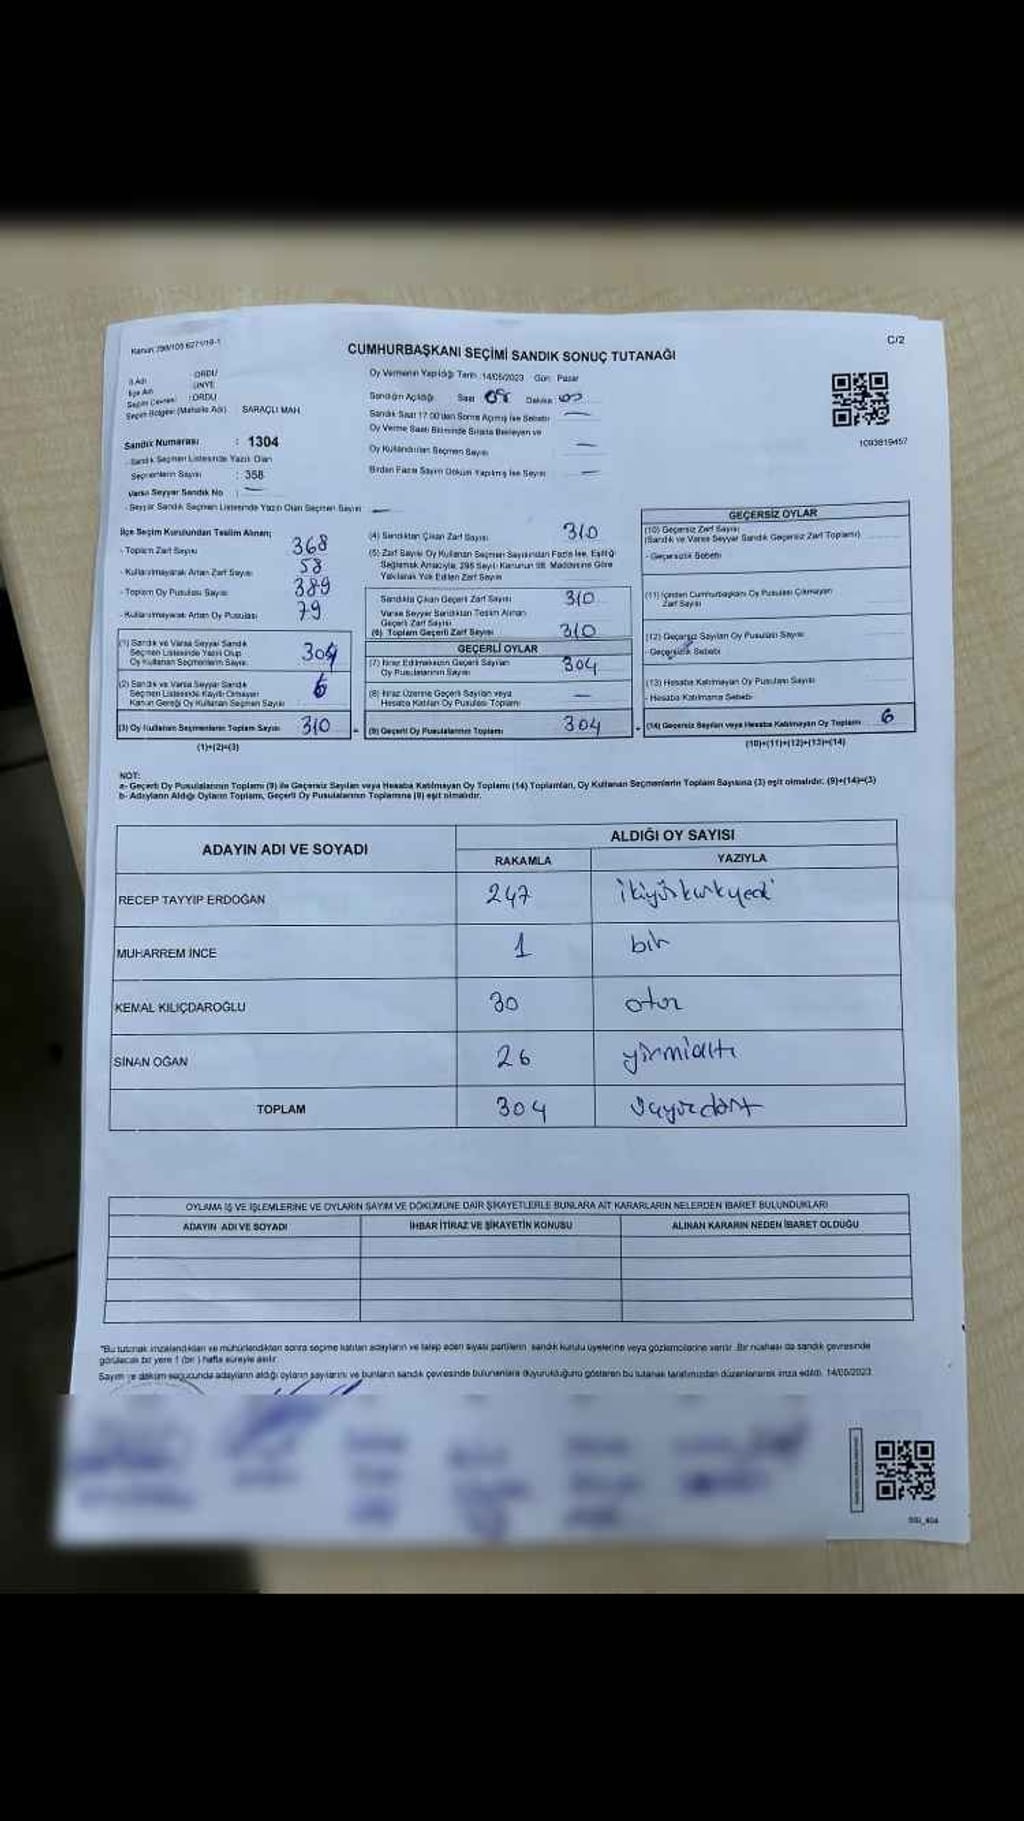 Kanun: 298/105 6271/19-1
C/2
CUMHURBAŞKANI SEÇİMİ SANDIK SONUÇ TUTANAĞI
İl Adı : ORDU
İlçe Adı : ÜNYE
Seçim Çevresi : ORDU
Seçim Bölgesi (Mahalle Adı) SARAÇLI MAH.
Sandık Numarası : 1304
Sandık Seçmen Listesinde Yazılı Olan
Seçmenlerin Sayısı : 358
Varsa Seyyar Sandık No : —
- Seyyar Sandık Seçmen Listesinde Yazılı Olan Seçmen Sayısı —
Oy Vermenin Yapıldığı Tarih 14/05/2023 Gün: Pazar
Sandığın Açıldığı: Saat 08 Dakika: 00
Sandık Saat 17.00'den Sonra Açılmış İse Sebebi —
Oy Verme Saati Bitiminde Sırada Bekleyen ve
Oy Kullandırılan Seçmen Sayısı —
Birden Fazla Sayım Döküm Yapılmış İse Sayısı —
1093819457
İlçe Seçim Kurulundan Teslim Alınan;
- Toplam Zarf Sayısı 368
- Kullanılmayarak Artan Zarf Sayısı 58
- Toplam Oy Pusulası Sayısı 389
- Kullanılmayarak Artan Oy Pusulası 79
(1) Sandık ve Varsa Seyyar Sandık
Seçmen Listesinde Yazılı Olup
Oy Kullanan Seçmenlerin Sayısı 304
(2) Sandık ve Varsa Seyyar Sandık
Seçmen Listesinde Kayıtlı Olmayan
Kanun Gereği Oy Kullanan Seçmen Sayısı 6
(3) Oy Kullanan Seçmenlerin Toplam Sayısı 310
(1)+(2)=(3)
(4) Sandıktan Çıkan Zarf Sayısı 310
(5) Zarf Sayısı Oy Kullanan Seçmen Sayısından Fazla İse, Eşitliği
Sağlamak Amacıyla, 298 Sayılı Kanunun 98. Maddesine Göre
Yakılarak Yok Edilen Zarf Sayısı
Sandıkta Çıkan Geçerli Zarf Sayısı 310
Varsa Seyyar Sandıktan Teslim Alınan
Geçerli Zarf Sayısı
(6) Toplam Geçerli Zarf Sayısı 310
GEÇERLİ OYLAR
(7) İtiraz Edilmeksizin Geçerli Sayılan
Oy Pusulalarının Sayısı 304
(8) İtiraz Üzerine Geçerli Sayılan veya
Hesaba Katılan Oy Pusulası Toplamı —
(9) Geçerli Oy Pusulalarının Toplamı 304
GEÇERSİZ OYLAR
(10) Geçersiz Zarf Sayısı
(Sandık ve Varsa Seyyar Sandık Geçersiz Zarf Toplamı)
- Geçersizlik Sebebi
(11) İçinden Cumhurbaşkanı Oy Pusulası Çıkmayan
Zarf Sayısı
(12) Geçersiz Sayılan Oy Pusulası Sayısı
- Geçersizlik Sebebi
(13) Hesaba Katılmayan Oy Pusulası Sayısı
- Hesaba Katılmama Sebebi
(14) Geçersiz Sayılan veya Hesaba Katılmayan Oy Toplamı 6
(10)+(11)+(12)+(13)=(14)
NOT:
a- Geçerli Oy Pusulalarının Toplamı (9) ile Geçersiz Sayılan veya Hesaba Katılmayan Oy Toplamı (14) Toplamları, Oy Kullanan Seçmenlerin Toplam Sayısına (3) eşit olmalıdır. (9)+(14)=(3)
b- Adayların Aldığı Oyların Toplamı, Geçerli Oy Pusulalarının Toplamına (9) eşit olmalıdır.
ADAYIN ADI VE SOYADI ALDIĞI OY SAYISI
RAKAMLA YAZIYLA
RECEP TAYYİP ERDOĞAN 247 ikiyüzkırkyedi
MUHARREM İNCE 1 bir
KEMAL KILIÇDAROĞLU 30 otuz
SİNAN OĞAN 26 yirmialtı
TOPLAM 304 üçyüzdört
OYLAMA İŞ VE İŞLEMLERİNE VE OYLARIN SAYIM VE DÖKÜMÜNE DAİR ŞİKAYETLERLE BUNLARA AİT KARARLARIN NELERDEN İBARET BULUNDUKLARI
ADAYIN ADI VE SOYADI İHBAR İTİRAZ VE ŞİKAYETİN KONUSU ALINAN KARARIN NEDEN İBARET OLDUĞU
*Bu tutanak imzalandıktan ve mühürlendikten sonra seçime katılan adayların ve talep eden siyasi partilerin sandık kurulu üyelerine veya gözlemcilerine verilir. Bir nüshası da sandık çevresinde
görülecek bir yere 1 (bir) hafta süreyle asılır.
Sayım ve döküm sonucunda adayların aldığı oyların sayılarını ve bunların sandık çevresinde bulunanlara duyurulduğunu gösteren bu tutanak tarafımızdan düzenlenerek imza edildi. 14/05/2023